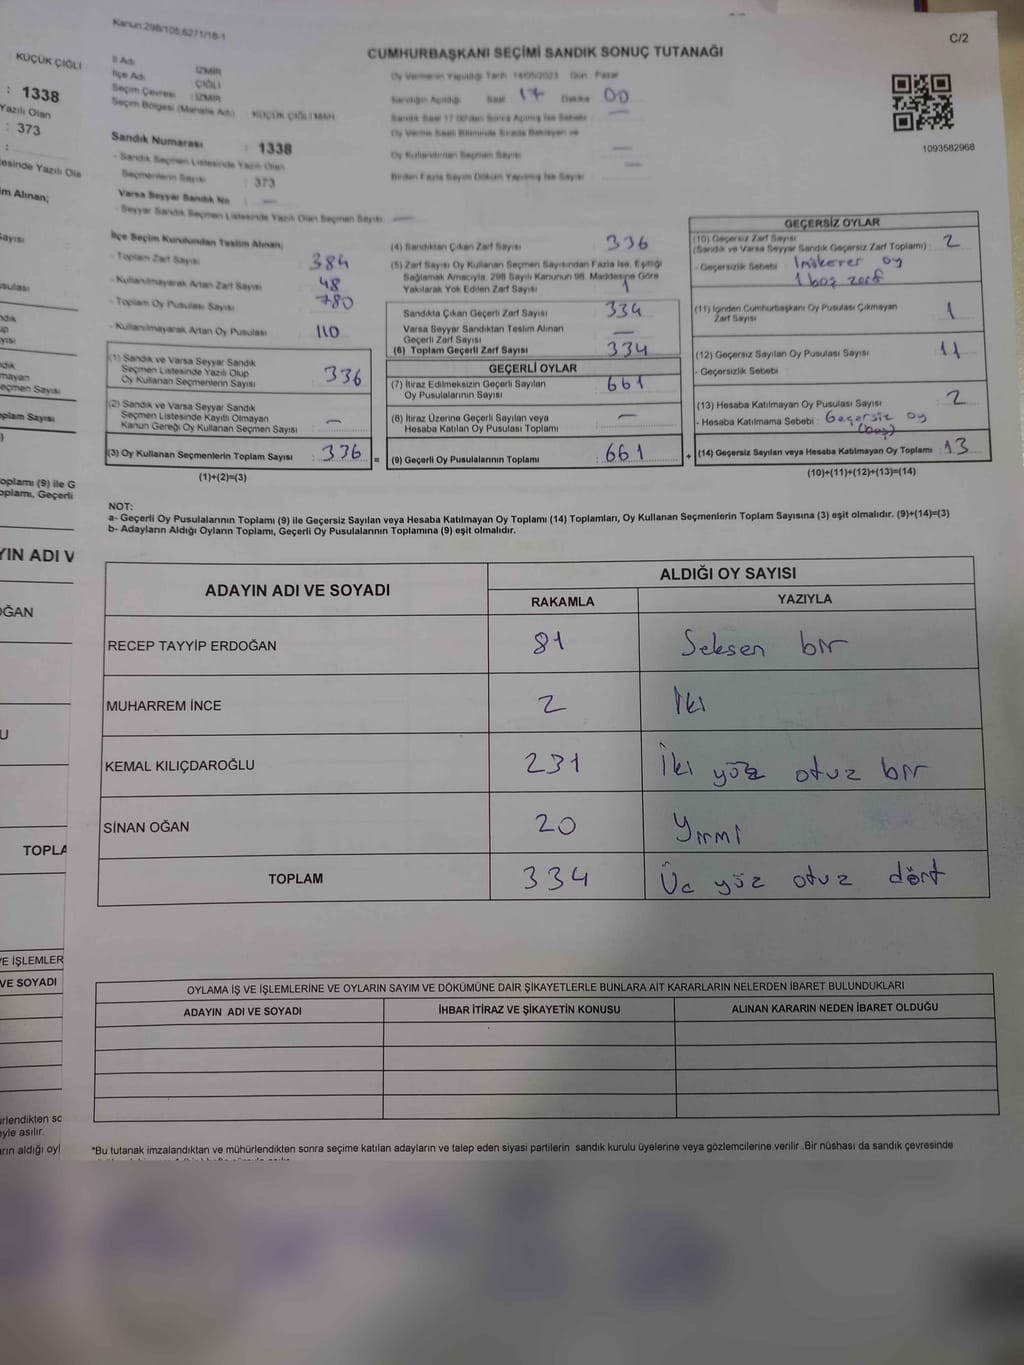 Kanun:298/105,6271/18-1
C/2
CUMHURBAŞKANI SEÇİMİ SANDIK SONUÇ TUTANAĞI
İl Adı : İZMİR
İlçe Adı : ÇİĞLİ
Seçim Çevresi : İZMİR
Seçim Bölgesi (Mahalle Adı) : KÜÇÜK ÇİĞLİ MAH.
Sandık Numarası : 1338
- Sandık Seçmen Listesinde Yazılı Olan
Seçmenlerin Sayısı : 373
Varsa Seyyar Sandık No : —
- Seyyar Sandık Seçmen Listesinde Yazılı Olan Seçmen Sayısı : —
Oy Vermenin Yapıldığı Tarih 14/05/2023 Gün Pazar
Sandığın Açıldığı Saat 17 Dakika 00
Sandık Saat 17.00'dan Sonra Açılmış İse Sebebi —
Oy Verme Saati Bitiminde Sırada Bekleyen ve
Oy Kullandırılan Seçmen Sayısı —
Birden Fazla Sayım Döküm Yapılmış İse Sayısı —
1093582968
İlçe Seçim Kurulundan Teslim Alınan;
- Toplam Zarf Sayısı : 384
- Kullanılmayarak Artan Zarf Sayısı : 48
- Toplam Oy Pusulası Sayısı : 780
- Kullanılmayarak Artan Oy Pusulası : 110
(1) Sandık ve Varsa Seyyar Sandık
Seçmen Listesinde Yazılı Olup
Oy Kullanan Seçmenlerin Sayısı : 336
(2) Sandık ve Varsa Seyyar Sandık
Seçmen Listesinde Kayıtlı Olmayan
Kanun Gereği Oy Kullanan Seçmen Sayısı : —
(3) Oy Kullanan Seçmenlerin Toplam Sayısı : 336 =
(1)+(2)=(3)
(4) Sandıktan Çıkan Zarf Sayısı : 336
(5) Zarf Sayısı Oy Kullanan Seçmen Sayısından Fazla İse, Eşitliği
Sağlamak Amacıyla, 298 Sayılı Kanunun 98. Maddesine Göre
Yakılarak Yok Edilen Zarf Sayısı :
Sandıkla Çıkan Geçerli Zarf Sayısı : 334
Varsa Seyyar Sandıktan Teslim Alınan
Geçerli Zarf Sayısı : —
(6) Toplam Geçerli Zarf Sayısı : 334
GEÇERLİ OYLAR
(7) İtiraz Edilmeksizin Geçerli Sayılan
Oy Pusulalarının Sayısı : 661
(8) İtiraz Üzerine Geçerli Sayılan veya
Hesaba Katılan Oy Pusulası Toplamı : —
(9) Geçerli Oy Pusulalarının Toplamı : 661 +
GEÇERSİZ OYLAR
(10) Geçersiz Zarf Sayısı
(Sandık ve Varsa Seyyar Sandık Geçersiz Zarf Toplamı) : 2
- Geçersizlik Sebebi : 1 mükerrer oy
1 boş zarf
(11) İçinden Cumhurbaşkanı Oy Pusulası Çıkmayan
Zarf Sayısı : 1
(12) Geçersiz Sayılan Oy Pusulası Sayısı : 11
- Geçersizlik Sebebi :
(13) Hesaba Katılmayan Oy Pusulası Sayısı : 2
- Hesaba Katılmama Sebebi : Geçersiz oy
(boş)
(14) Geçersiz Sayılan veya Hesaba Katılmayan Oy Toplamı : 13
(10)+(11)+(12)+(13)=(14)
NOT:
a- Geçerli Oy Pusulalarının Toplamı (9) ile Geçersiz Sayılan veya Hesaba Katılmayan Oy Toplamı (14) Toplamları, Oy Kullanan Seçmenlerin Toplam Sayısına (3) eşit olmalıdır. (9)+(14)=(3)
b- Adayların Aldığı Oyların Toplamı, Geçerli Oy Pusulalarının Toplamına (9) eşit olmalıdır.
ADAYIN ADI VE SOYADI
ALDIĞI OY SAYISI
RAKAMLA YAZIYLA
RECEP TAYYİP ERDOĞAN 81 Seksen bir
MUHARREM İNCE 2 İki
KEMAL KILIÇDAROĞLU 231 İki yüz otuz bir
SİNAN OĞAN 20 Yirmi
TOPLAM 334 Üç yüz otuz dört
OYLAMA İŞ VE İŞLEMLERİNE VE OYLARIN SAYIM VE DÖKÜMÜNE DAİR ŞİKAYETLERLE BUNLARA AİT KARARLARIN NELERDEN İBARET BULUNDUKLARI
ADAYIN ADI VE SOYADI İHBAR İTİRAZ VE ŞİKAYETİN KONUSU ALINAN KARARIN NEDEN İBARET OLDUĞU
*Bu tutanak imzalandıktan ve mühürlendikten sonra seçime katılan adayların ve talep eden siyasi partilerin sandık kurulu üyelerine veya gözlemcilerine verilir .Bir nüshası da sandık çevresinde
KÜÇÜK ÇİĞLİ
: 1338
Yazılı Olan
: 373